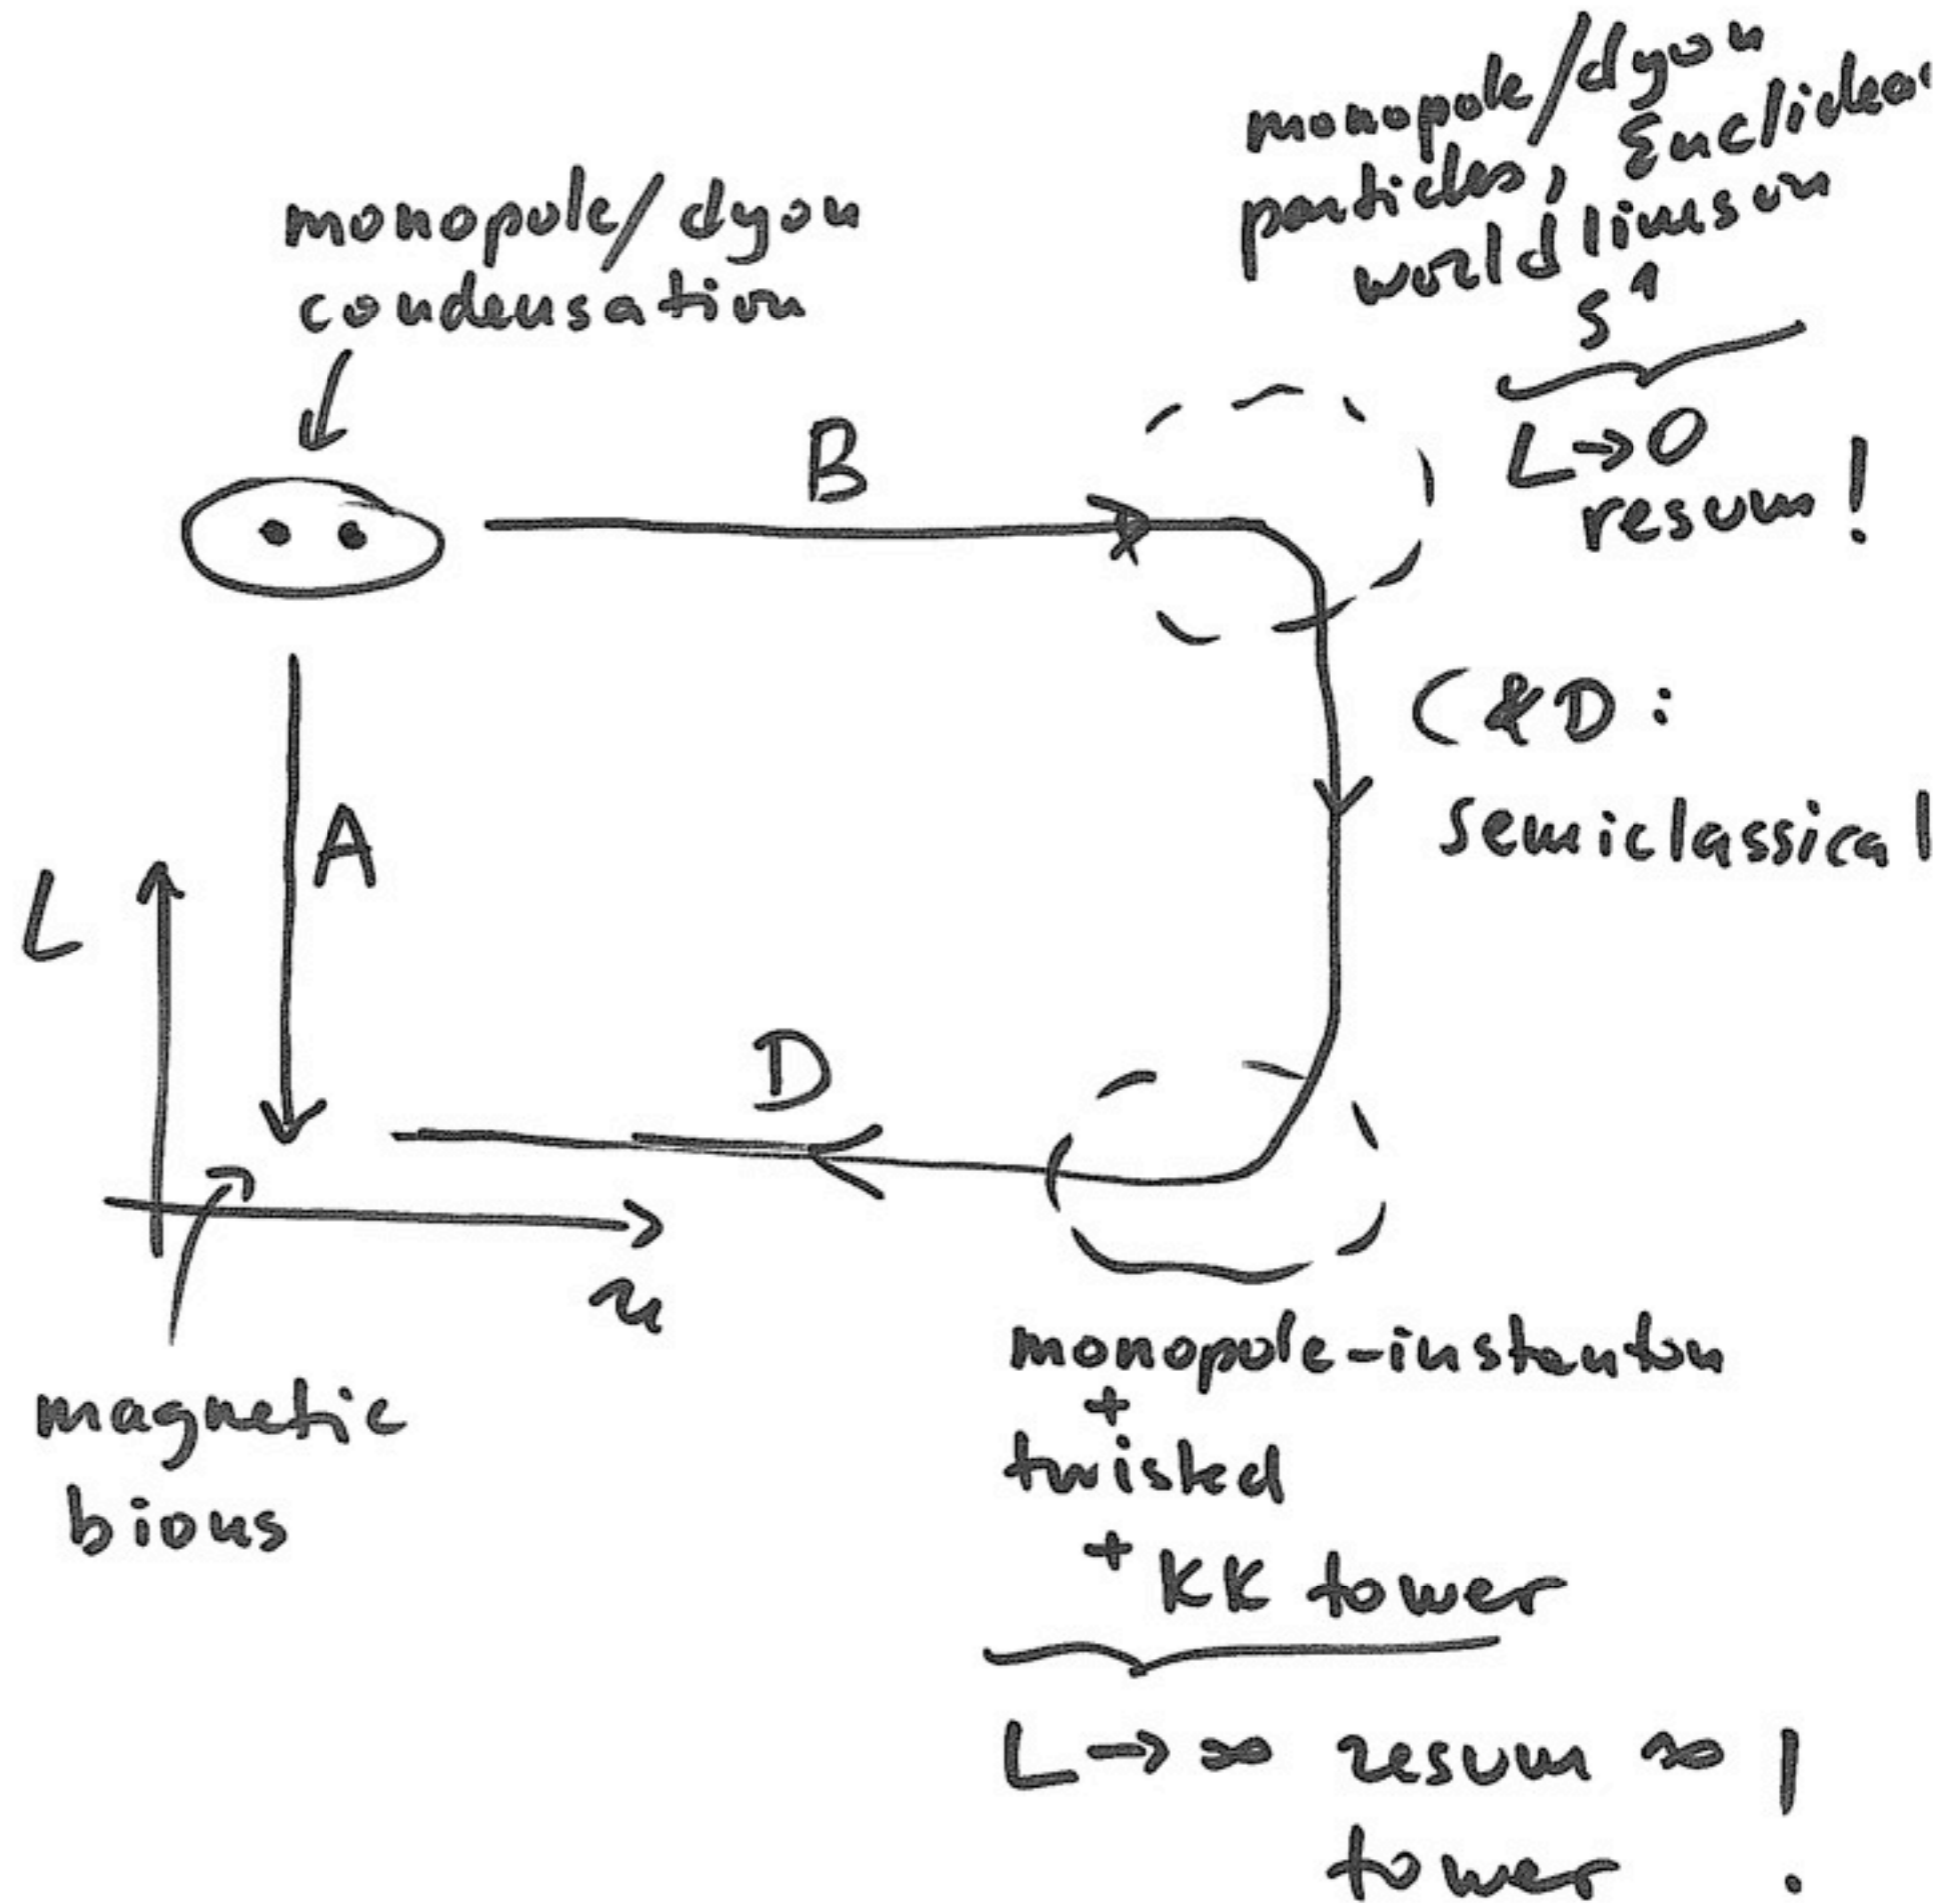 monopole/dyon
condensation
monopole/dyon
particles, Euclidean
worldlines on
S¹
L→0
resum!
B
A
C&D:
semiclassical
L
D
u
magnetic
bions
monopole-instanton
+
twisted
+ KK tower
L→∞ resum ∞ !
tower